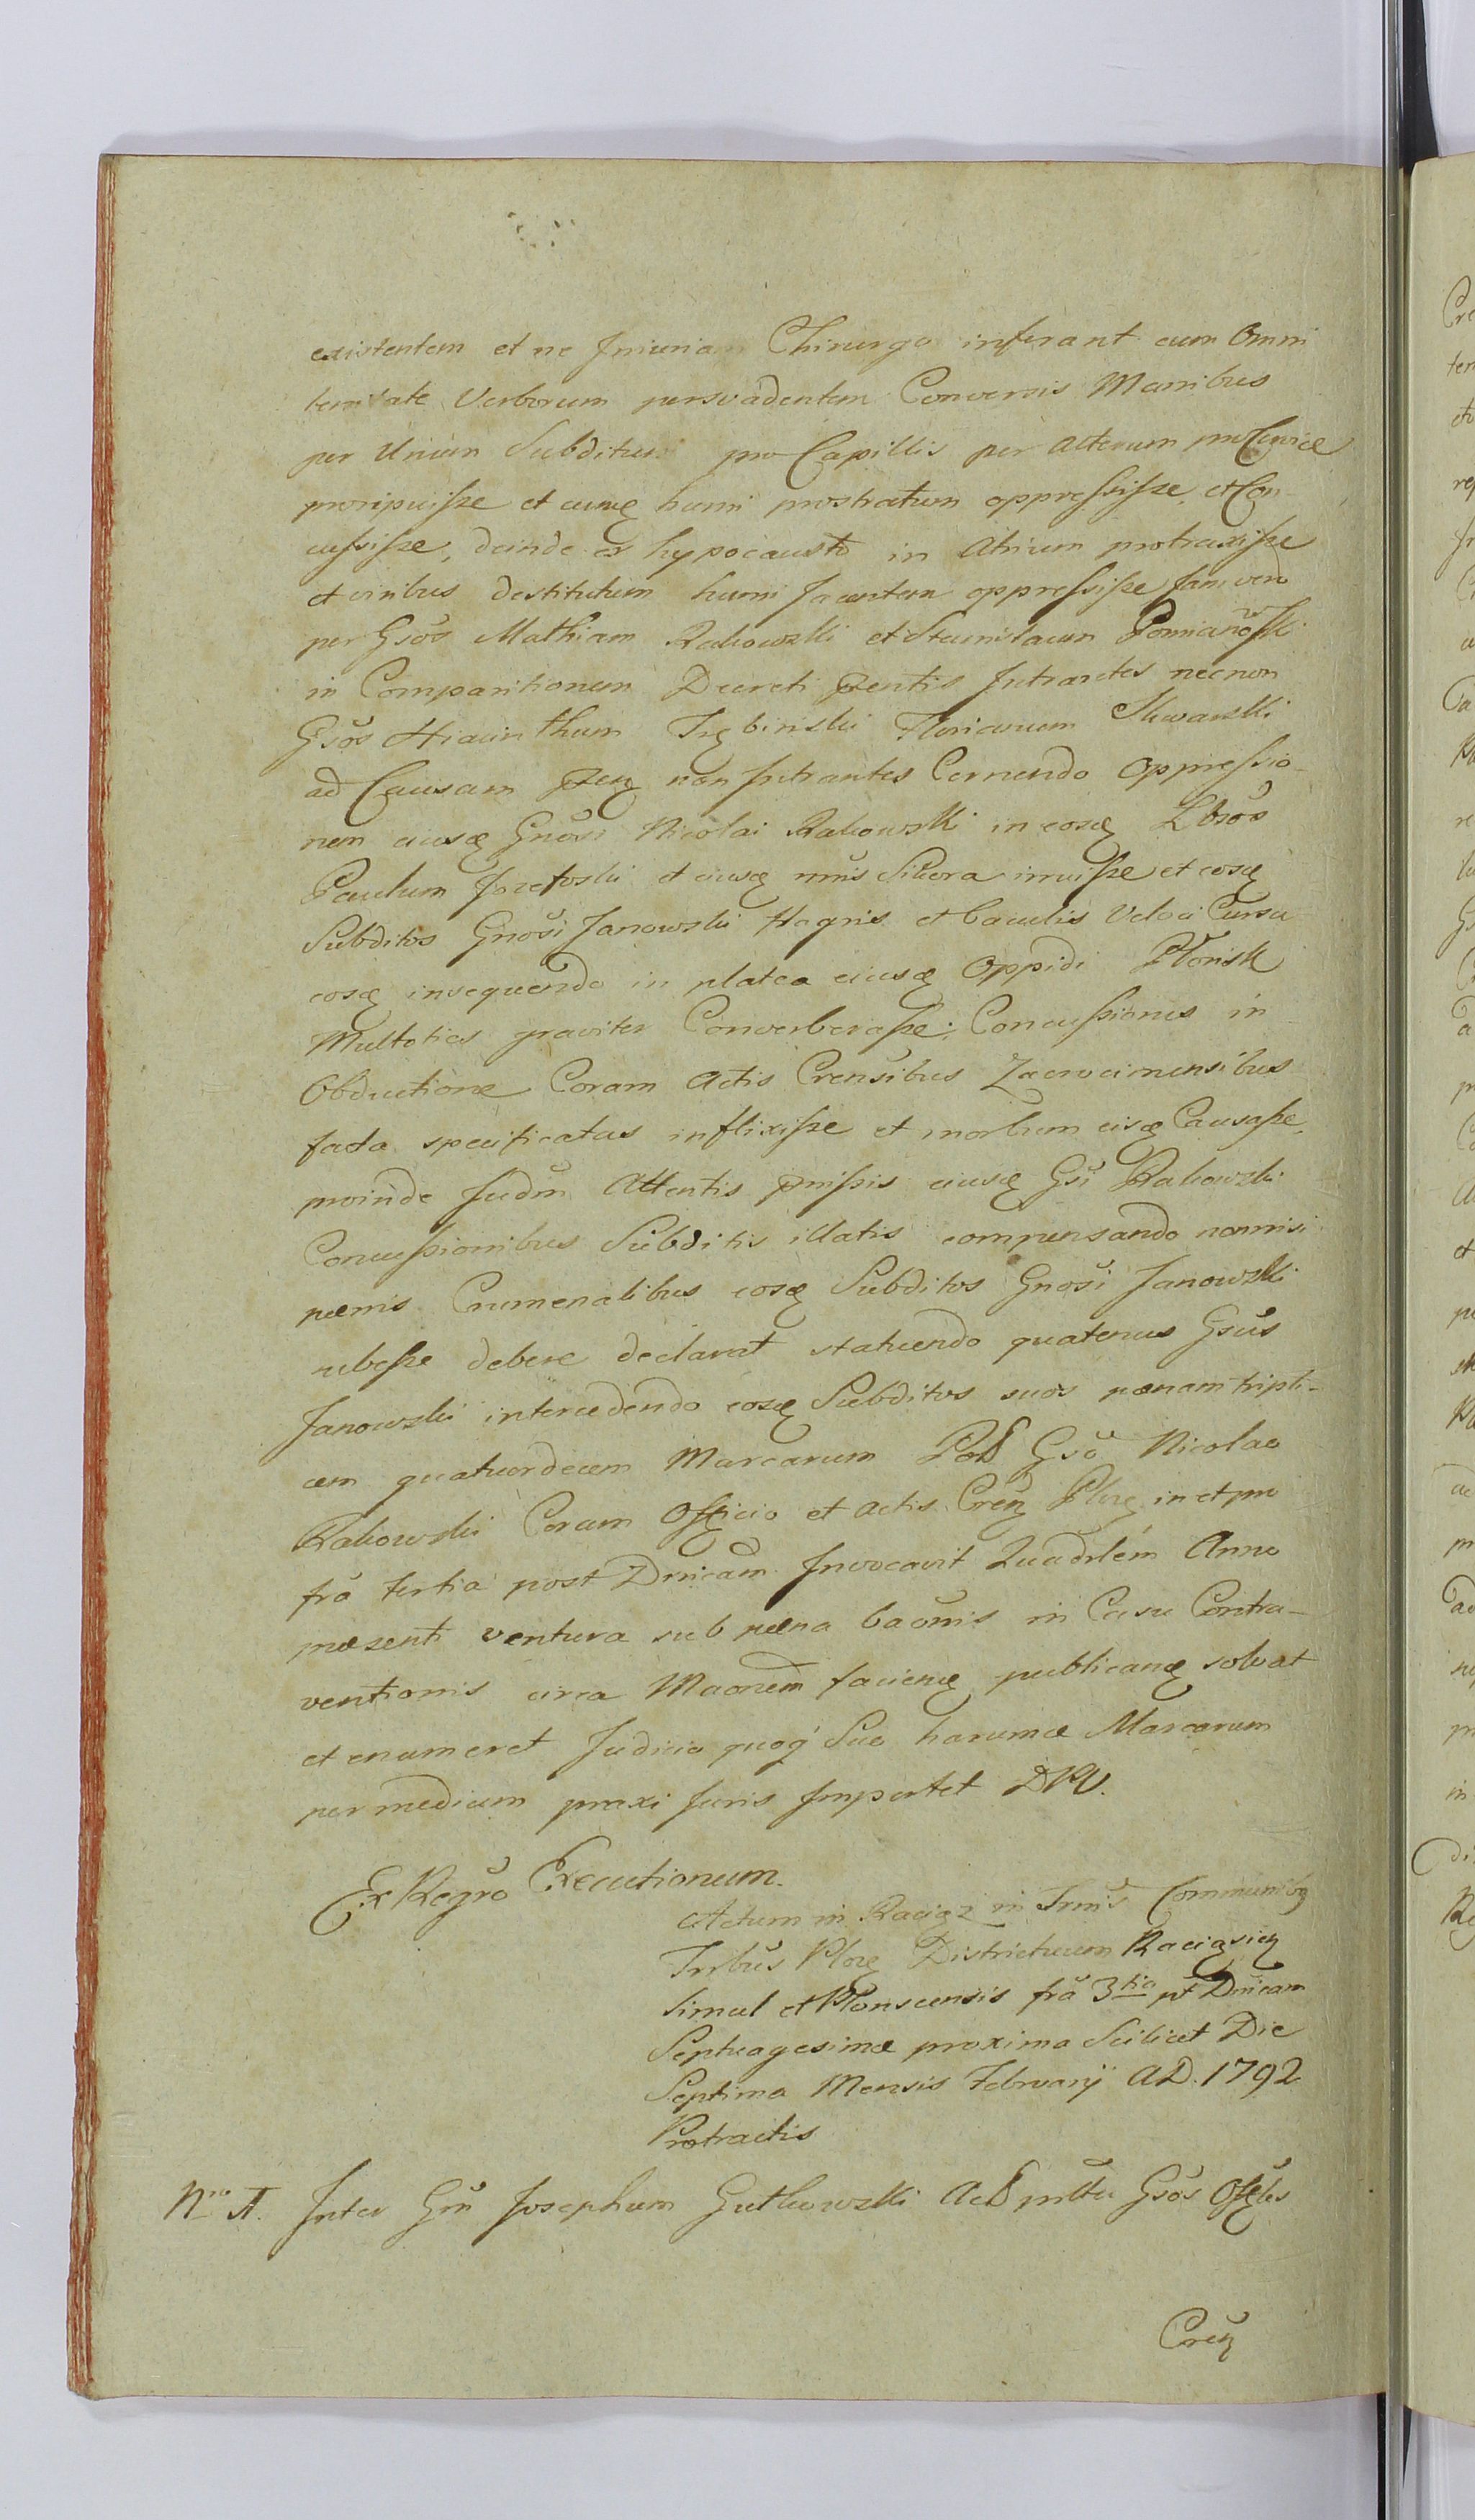 existentem et ne Injuriam Chirurgo inferant cum Omni
lenitate Verborum persvadentem Conversis Manibus
per Unum Subditum pro Capillis per alterum pro Cervice
proripuisse et eumq humi prostratum oppressisse, et Con-
cussisse, deinde ex hypocausto in Atrium protraxisse
et viribus destitutum humi Jacentem oppressisse Jam vero
per Gsos Mathiam Rakowski et Stanislaum Pomianowski
in Comparitionem Decreti pntis Intrantes necnon
Gsos Hiacinthum Trębinski Florianum Skwarski
ad Causam pntem non Intrantes Cernendo Oppressio-
nem eiusd Gnosi Nicolai Rakowski in eosd
Paulum Jozefoski et eiusd Sikora irruisse et eosd
Subditos Gnosi Janowski Hagnis et baculis Veloci Cursu
eosd insequendo in platea eiusd Oppidi Płonsk
Multoties graviter Converberasse, Concussiones in
Obductione Coram Actis Crensibus Zacrocimensibus
facta specificatas inflixisse et morbum eisd Causasse,
proinde Judm Attentis pmissis eiusd Gsi Rakowski
Concussionibus Subditis illatis compensando nonnisi
pænis Crumenalibus eosd Subditos Gnosi Janowski
subesse debere declarat statuendo quatenus Gsus
Janowski intercedendo eosd Subditos suos pænam tripli-
cem quatuordecem Marcarum Gso Nicolao
Rakowski Coram Officio et Actis Cren Ploc in et pro
fra tertia post Dnicam Invocavit Quadrlem Anno
præsenti ventura sub pæna baonis in Casu Contra-
ventionis circa Maonem faciend publicand solvat
et enumeret Judicio quoq Suo harumd Marcarum
per medium praxi Juris Importet DPV.
Ex Regro Executionum.
Actum in Raciąz in Trmis Communibq
Tribus Ploc Districtuum Raciąsien
Simul et Płonscensis fra 3tia pt Dnicam
Septuagesimæ proxima Scilicet Die
Septima Mensis Februarij AD. 1792
Protractis
Nro 1. Inter Gm Josephum Gutkowski Act Gsos Offles
Cren